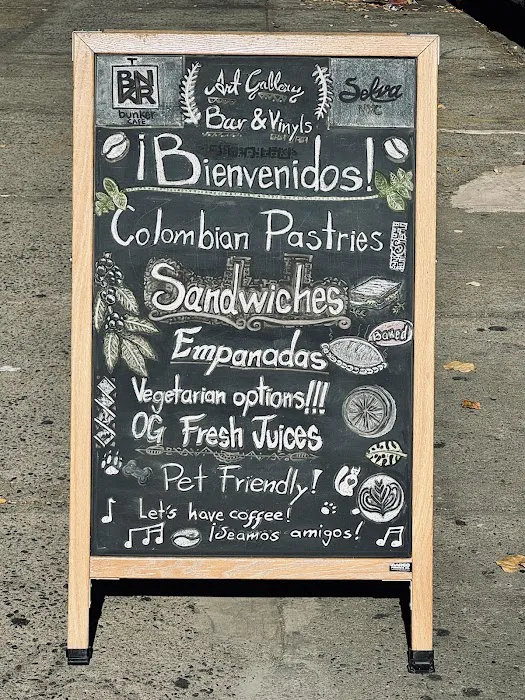 BNKR
bunker
CAFE
Art Gallery
Bar & Vinyls
Selva
NYC
¡Bienvenidos!
Colombian Pastries
Sandwiches
Baked
Empanadas
Vegetarian options!!!
OG Fresh Juices
Pet Friendly!
Let's have coffee!
¡Seamos amigos!